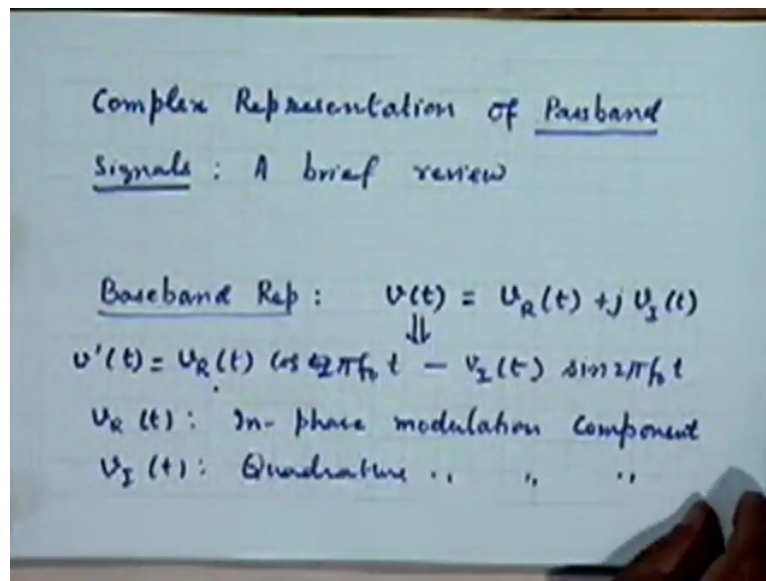 Complex Representation of Passband
Signals : A brief review
Baseband Rep : v(t) = v_R(t) + j v_I(t)
⇓
v'(t) = v_R(t) cos 2πf₀t − v_I(t) sin 2πf₀t
v_R (t) : In-phase modulation Component
v_I (t) : Quadrature " " "